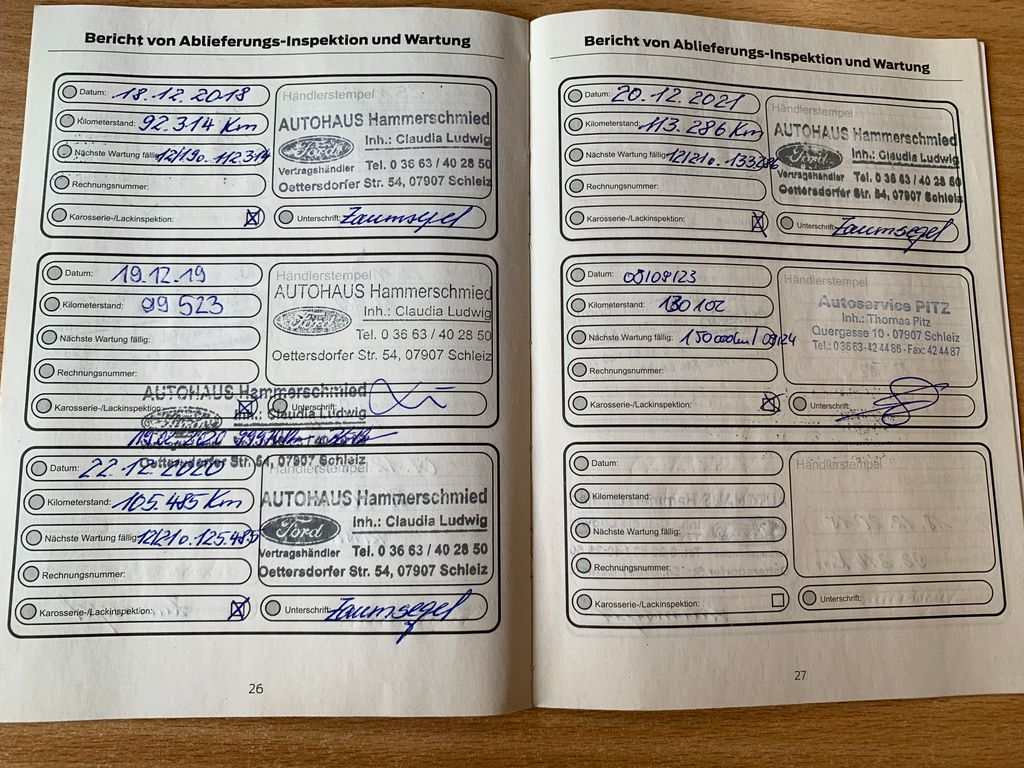 Bericht von Ablieferungs-Inspektion und Wartung
Datum: 18.12.2018
Kilometerstand: 92.314 Km
Nächste Wartung fällig: 12/19 o. 112.314
Rechnungsnummer:
Karosserie-/Lackinspektion:
Händlerstempel
AUTOHAUS Hammerschmied
Ford
Inh.: Claudia Ludwig
Vertragshändler Tel. 0 36 63 / 40 28 50
Oettersdorfer Str. 54, 07907 Schleiz
Unterschrift: Zaumsegel
Datum: 19.12.19
Kilometerstand: 99 523
Nächste Wartung fällig:
Rechnungsnummer:
Karosserie-/Lackinspektion:
Händlerstempel
AUTOHAUS Hammerschmied
Ford
Inh.: Claudia Ludwig
Tel. 0 36 63 / 40 28 50
Oettersdorfer Str. 54, 07907 Schleiz
Unterschrift:
AUTOHAUS Hammerschmied
Inh.: Claudia Ludwig
19.02.2020
Oettersdorfer Str. 54, 07907 Schleiz
Datum: 22.12.2020
Kilometerstand: 105.485 Km
Nächste Wartung fällig: 12/21 o. 125.485
Rechnungsnummer:
Karosserie-/Lackinspektion:
Händlerstempel
AUTOHAUS Hammerschmied
Ford
Inh.: Claudia Ludwig
Vertragshändler Tel. 0 36 63 / 40 28 50
Oettersdorfer Str. 54, 07907 Schleiz
Unterschrift: Zaumsegel
26
Bericht von Ablieferungs-Inspektion und Wartung
Datum: 20.12.2021
Kilometerstand: 113.286 Km
Nächste Wartung fällig: 12/21 o. 133.286
Rechnungsnummer:
Karosserie-/Lackinspektion:
Händlerstempel
AUTOHAUS Hammerschmied
Ford
Inh.: Claudia Ludwig
Vertragshändler Tel. 0 36 63 / 40 28 50
Oettersdorfer Str. 54, 07907 Schleiz
Unterschrift: Zaumsegel
Datum:
Kilometerstand: 130102
Nächste Wartung fällig:
Rechnungsnummer:
Karosserie-/Lackinspektion:
Händlerstempel
Autoservice PITZ
Inh.: Thomas Pitz
Quergasse 10 · 07907 Schleiz
Tel.: 03663-42 44 86 · Fax: 42 44 87
Unterschrift:
Datum:
Kilometerstand:
Nächste Wartung fällig:
Rechnungsnummer:
Karosserie-/Lackinspektion:
Händlerstempel
Unterschrift:
27